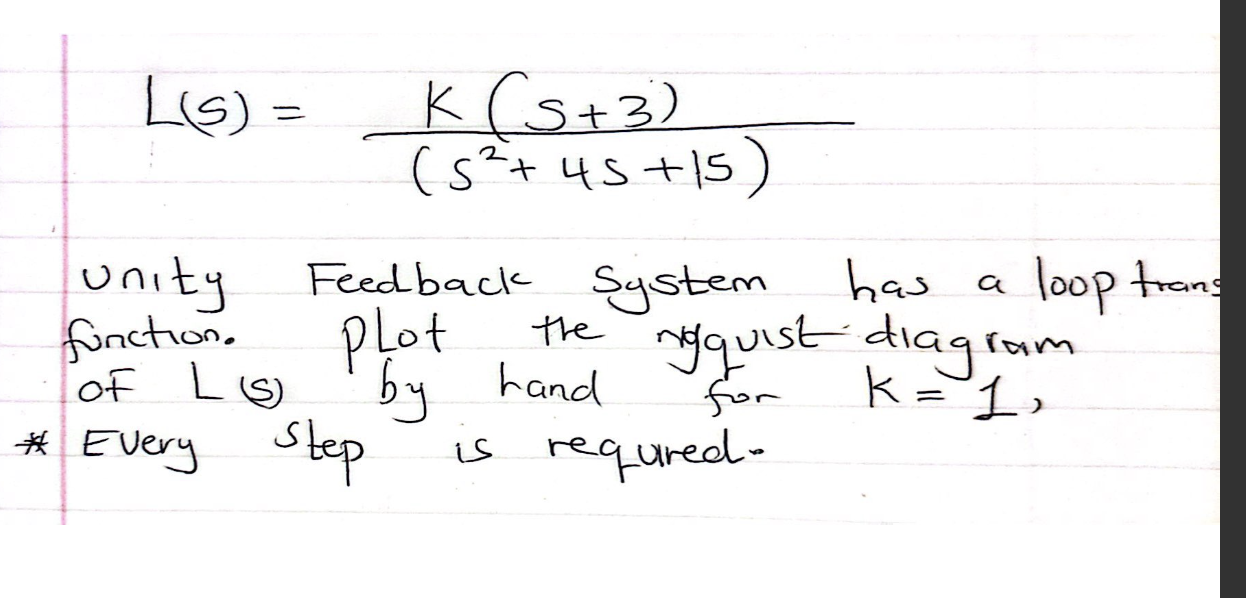 L(s) = K (s+3)
(s²+ 4s +15)
unity Feedback System has a loop trans
function. PLot the nyquist diagram
of L(s) by hand for K = 1,
* Every step is requred.